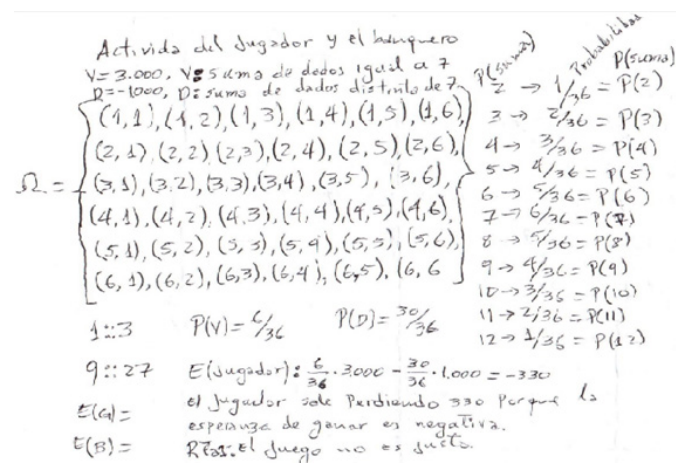 Activida del Jugador y el banquero
V = 3.000, V: suma de dados igual a 7
D = -1000, D: suma de dados distinta de 7
Ω =
(1,1), (1,2), (1,3), (1,4), (1,5), (1,6),
(2,1), (2,2), (2,3), (2,4), (2,5), (2,6),
(3,1), (3,2), (3,3), (3,4), (3,5), (3,6),
(4,1), (4,2), (4,3), (4,4), (4,5), (4,6),
(5,1), (5,2), (5,3), (5,4), (5,5), (5,6),
(6,1), (6,2), (6,3), (6,4), (6,5), (6,6
P(suma) Probabilidad P(suma)
2 → 1/36 = P(2)
3 → 2/36 = P(3)
4 → 3/36 = P(4)
5 → 4/36 = P(5)
6 → 5/36 = P(6)
7 → 6/36 = P(7)
8 → 5/36 = P(8)
9 → 4/36 = P(9)
10 → 3/36 = P(10)
11 → 2/36 = P(11)
12 → 1/36 = P(12)
1::3 P(V) = 6/36 P(D) = 30/36
9::27 E(Jugador): 6/36 · 3.000 - 30/36 · 1.000 = -330
E(G) = el Jugador sale Perdiendo 330 Porque la
esperanza de ganar es negativa.
E(B) = el Juego no es justo.